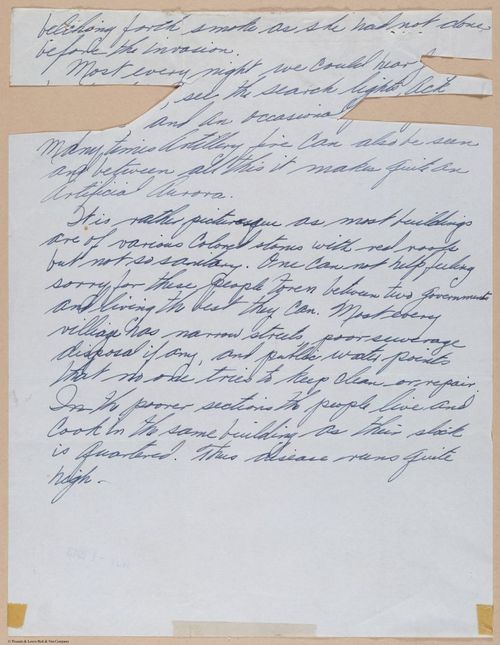 belching forth smoke as she had not done
before the invasion.
Most every night we could hear
, see the search lights, Ack
and an occasional
many times Artillery fire can also be seen
and between all this it makes quite an
Artificial Aurora.
It is rather picturesque as most buildings
are of various colored stones with red roofs
but not so sanitary. One can not help feeling
sorry for these people torn between two Governments
and living the best they can. Most every
village has narrow streets, poor sewerage
disposal if any, and public water points
that no one tries to keep clean or repair.
In the poorer sections the people live and
cook in the same building as their stock
is quartered. Thus disease runs quite
high -
© Pounds & Lewis Belt & Nut Company